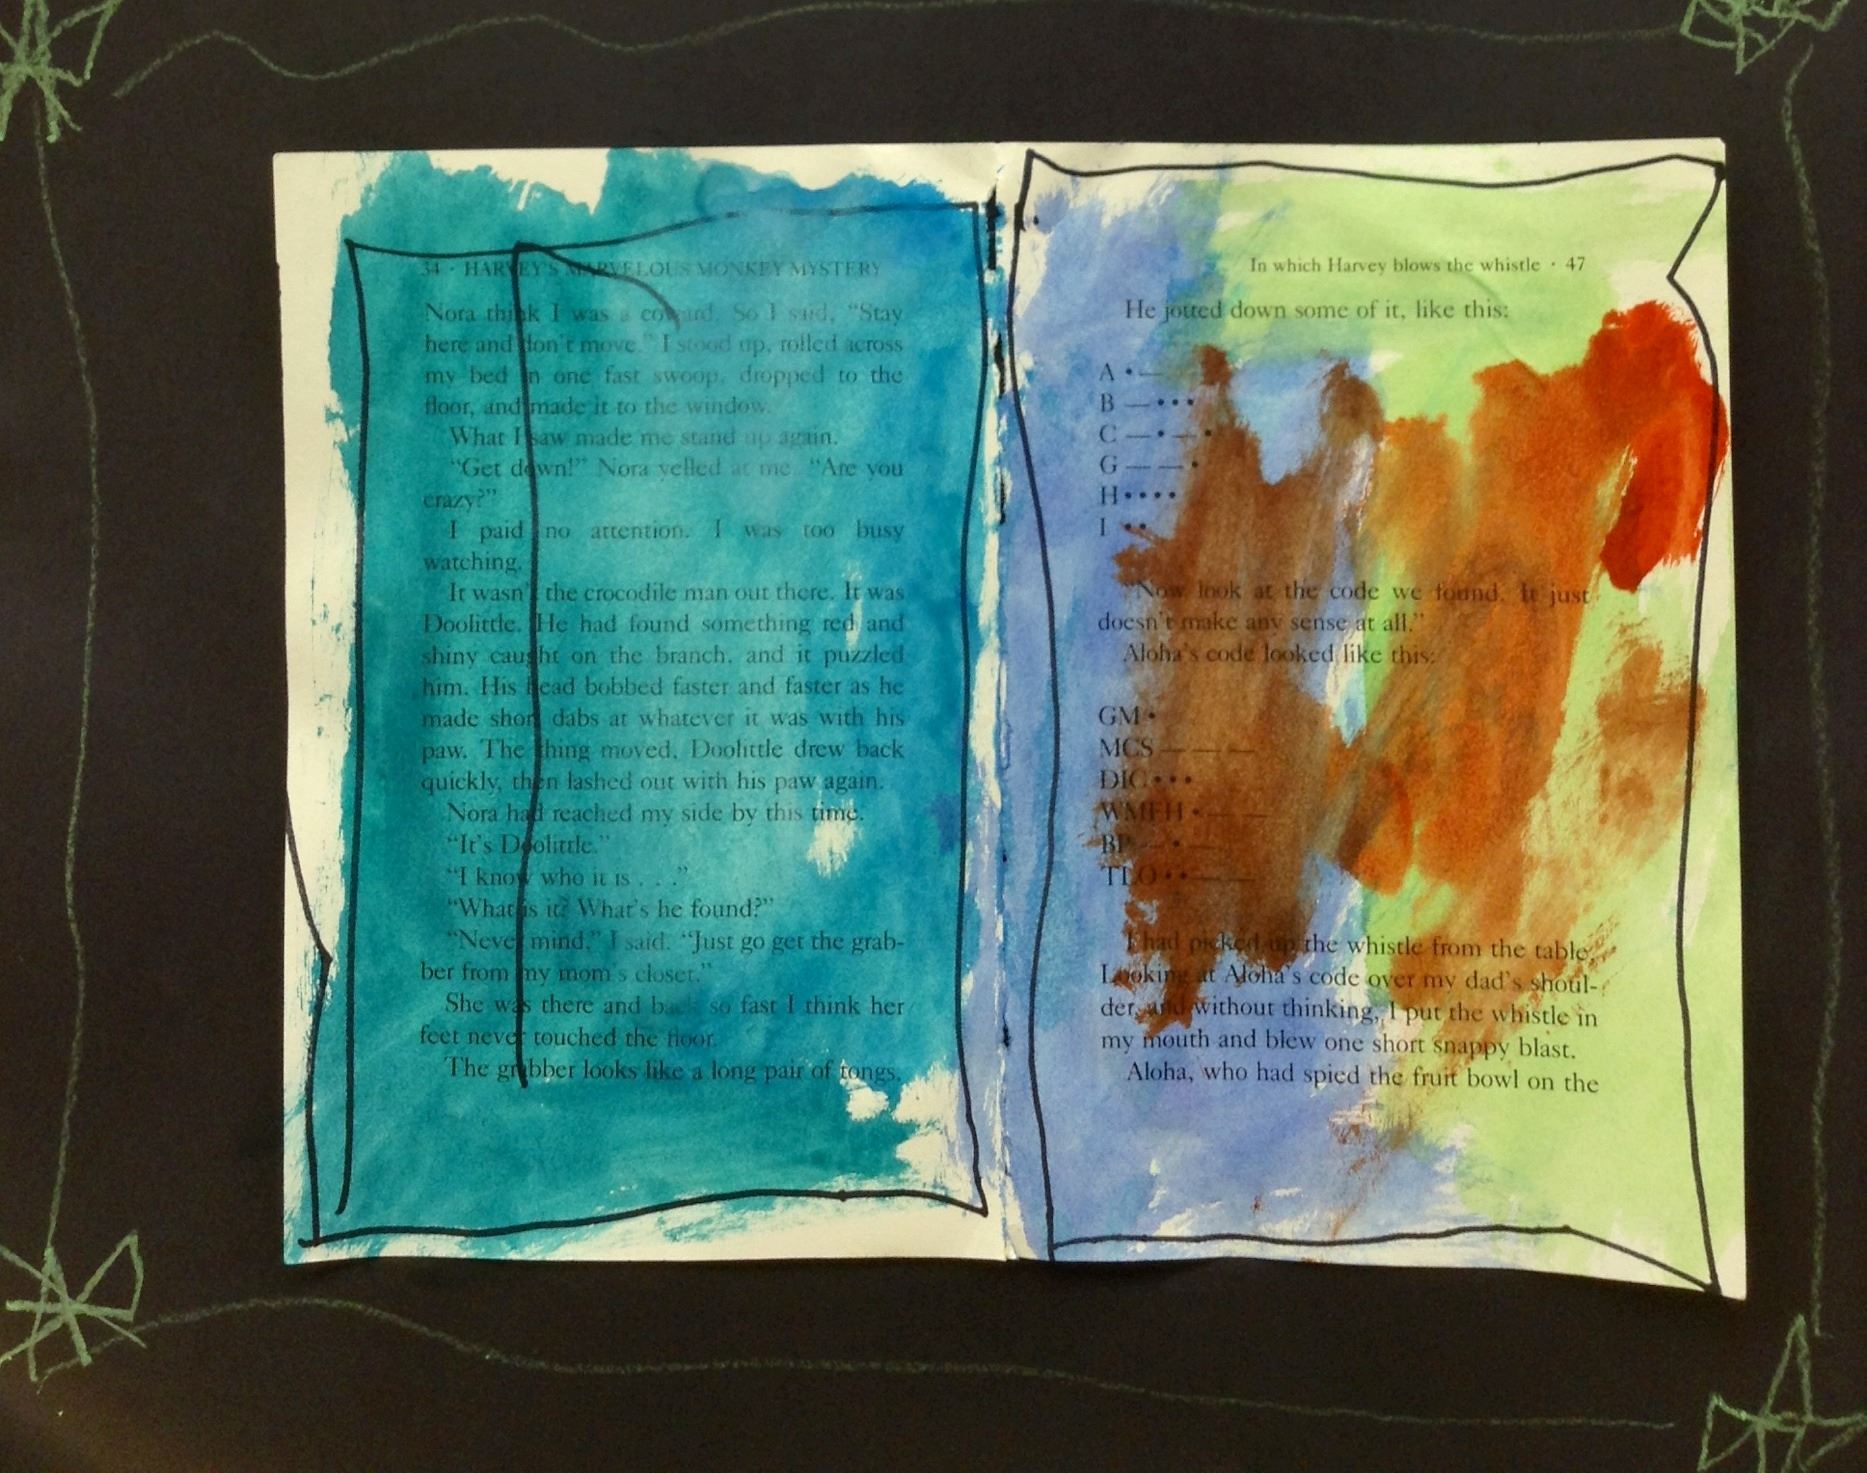 34 · HARVEY'S MARVELOUS MONKEY MYSTERY
Nora think I was a coward. So I said, “Stay
here and don't move.” I stood up, rolled across
my bed in one fast swoop, dropped to the
floor, and made it to the window.
What I saw made me stand up again.
“Get down!” Nora yelled at me. “Are you
crazy?”
I paid no attention. I was too busy
watching.
It wasn't the crocodile man out there. It was
Doolittle. He had found something red and
shiny caught on the branch, and it puzzled
him. His head bobbed faster and faster as he
made short dabs at whatever it was with his
paw. The thing moved. Doolittle drew back
quickly, then lashed out with his paw again.
Nora had reached my side by this time.
“It's Doolittle.”
“I know who it is . . .”
“What is it? What's he found?”
“Never mind,” I said. “Just go get the grab-
ber from my mom's closet.”
She was there and back so fast I think her
feet never touched the floor.
The grabber looks like a long pair of tongs,
In which Harvey blows the whistle · 47
He jotted down some of it, like this:
A •—
B —•••
C —•—•
G ——•
H ••••
I ••
“Now look at the code we found. It just
doesn't make any sense at all.”
Aloha's code looked like this:
GM •
MCS ———
DIG •••
WMFH •——
BP —•—
TLO ••——
I had picked up the whistle from the table.
Looking at Aloha's code over my dad's shoul-
der, and without thinking, I put the whistle in
my mouth and blew one short snappy blast.
Aloha, who had spied the fruit bowl on the